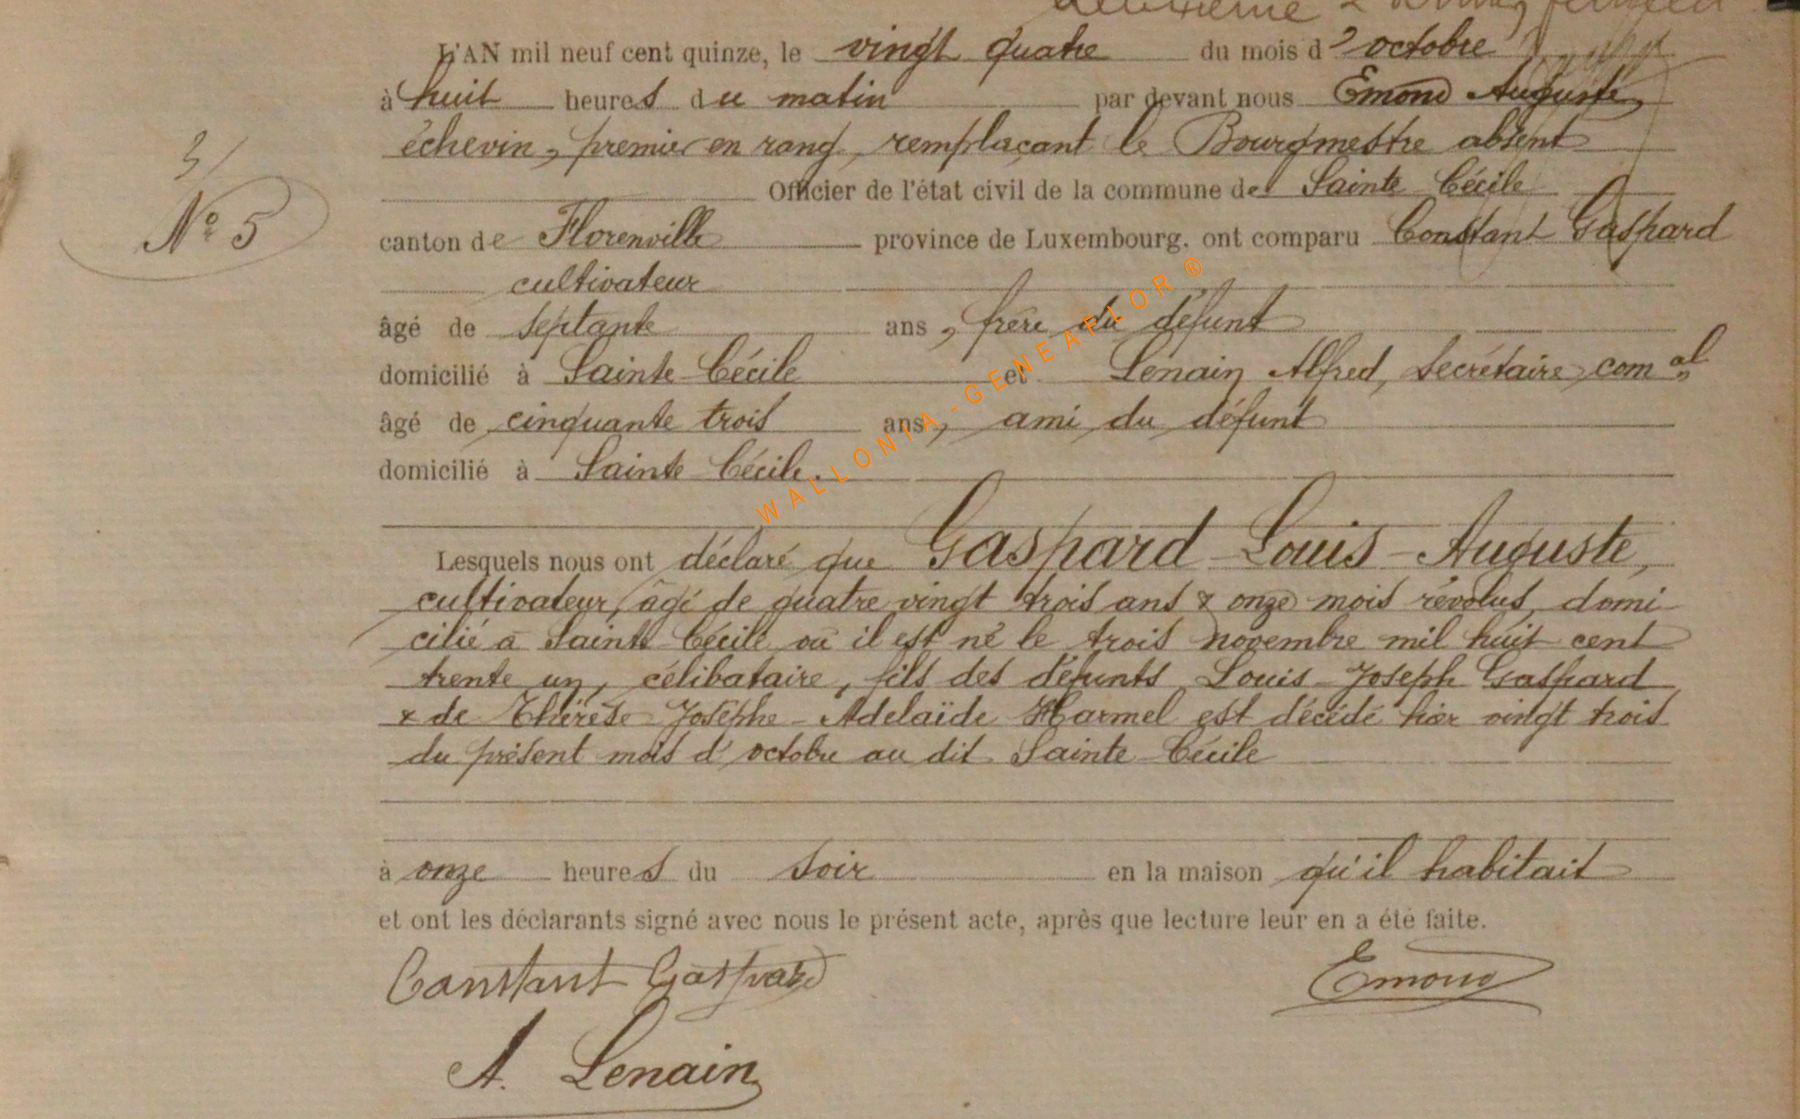 deuxième
L'AN mil neuf cent quinze, le vingt quatre du mois d'octobre
à huit heures du matin par devant nous Emond Auguste,
échevin, premier en rang, remplaçant le Bourgmestre absent
3/
Officier de l'état civil de la commune de Sainte Cécile
N° 5
canton de Florenville province de Luxembourg, ont comparu Constant Gaspard
cultivateur
âgé de septante ans, frère du défunt
domicilié à Sainte-Cécile et Lenain Alfred, Secrétaire comal
âgé de cinquante trois ans, ami du défunt
domicilié à Sainte Cécile.
WALLONIA-GENEAFLOR®
Lesquels nous ont déclaré que Gaspard-Louis-Auguste,
cultivateur, âgé de quatre vingt trois ans & onze mois révolus, domi
cilié à Sainte Cécile où il est né le trois novembre mil huit cent
trente un, célibataire, fils des défunts Louis-Joseph Gaspard
& de Thérèse-Josèphe-Adelaïde Harmel est décédé hier vingt trois
du présent mois d'octobre au dit Sainte-Cécile
à onze heures du soir en la maison qu'il habitait
et ont les déclarants signé avec nous le présent acte, après que lecture leur en a été faite.
Constant Gaspard Emond
A. Lenain